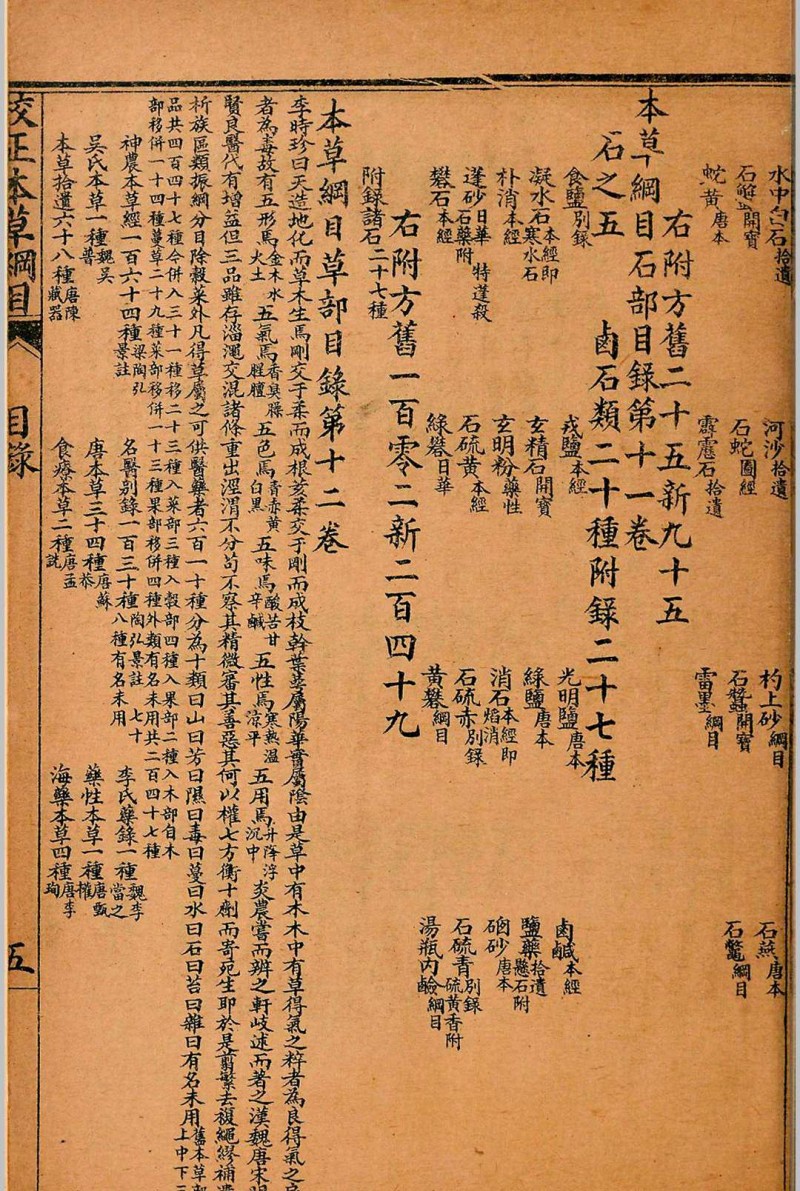 水中白石拾遺 河沙拾遺 杓上砂綱目 石燕唐本
石蟹開寶 石蛇圖經 石蠶開寶 石鱉綱目
蛇黃唐本 霹靂石拾遺 雷墨綱目
右附方舊二十五新九十五
本草綱目石部目錄第十一卷
石之五 鹵石類二十種附錄二十七種
食鹽別錄 戎鹽本經 光明鹽唐本 鹵鹹本經
凝水石本經即寒水石 玄精石開寶 綠鹽唐本 鹽藥拾遺懸石附
朴消本經 玄明粉藥性 消石本經即焰消 硇砂唐本
蓬砂日華石藥附 特蓬殺 石硫黃本經 石硫赤別錄 石硫青別錄硫黃香附
礬石本經 綠礬日華 黃礬綱目 湯瓶內鹼綱目
附錄諸石二十七種
右附方舊一百零二新二百四十九
本草綱目草部目錄第十二卷
李時珍曰天造地化而草木生焉剛交于柔而成根荄柔交于剛而成枝幹葉萼屬陽華實屬陰由是草中有木木中有草得氣之粹者為良得氣之
者為毒故有五形焉金木水火土五氣焉香臭臊腥膻五色焉青赤黃白黑五味焉酸苦甘辛鹹五性焉寒熱溫涼平五用焉升降浮沉中炎農嘗而辨之軒岐述而著之漢魏唐宋明
賢良醫代有增益但三品雖存淄澠交混諸條重出涇渭不分苟不察其精微審其善惡其何以權七方衡十劑而寄死生耶於是翦繁去複繩繆補
析族區類振綱分目除穀菜外凡得草屬之可供醫藥者六百一十種分為十類曰山曰芳曰隰曰毒曰蔓曰水曰石曰苔曰雜曰有名未用舊本草部上中下三
品共四百四十七種今併入三十一種移二十三種入菜部三種入穀部四種入果部二種入木部自木
部移併一十四種蔓草二十九種菜部移併一十三種果部移併四種外類有名未用共二百四十七種
神農本草經一百六十四種梁陶弘景註 名醫別錄一百三十種陶弘景註 七十八種有名未用 李氏藥錄一種魏李當之
吳氏本草一種魏吳普 唐本草三十四種唐蘇恭 藥性本草一種唐甄權
本草拾遺六十八種唐陳藏器 食療本草二種唐孟詵 海藥本草四種唐李珣
校正本草綱目 目錄 五